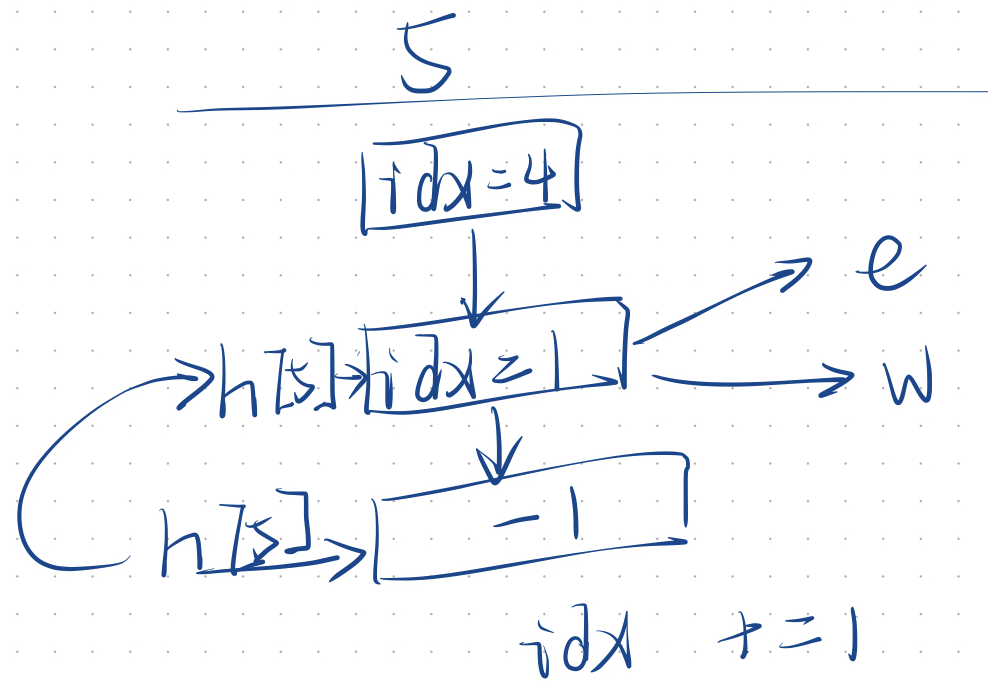 5
idx=4
e
h[5] idx=1
w
h[5] -1
idx +=1